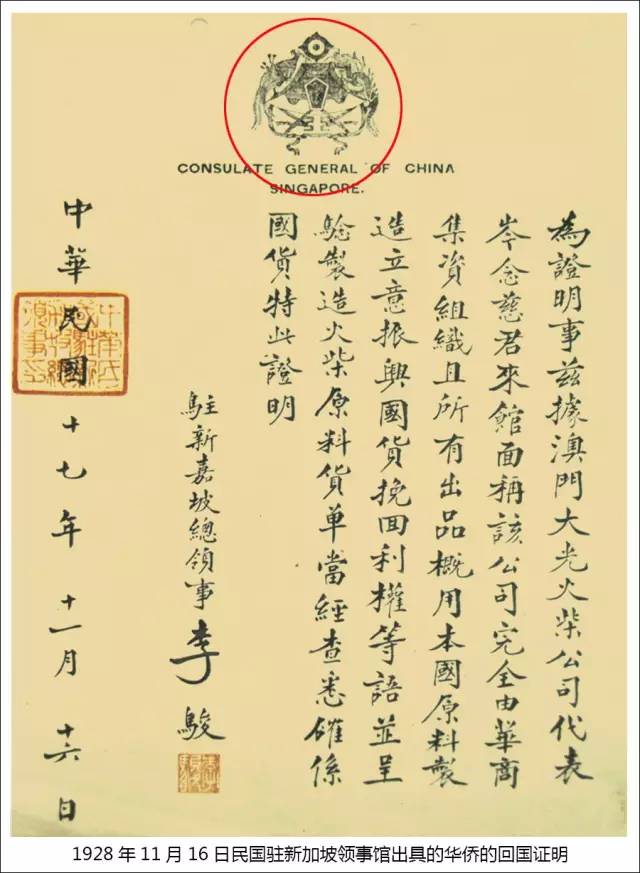 CONSULATE GENERAL OF CHINA
SINGAPORE.
為證明事兹據澳門大光火柴公司代表
岑念慈君來館面稱該公司完全由華商
集資組織且所有出品概用本國原料製
造立意振興國貨挽回利權等語並呈
騐製造火柴原料貨单當經查悉確係
國貨特此證明
駐新嘉坡總領事李駿
中華民國十七年十一月十六日
1928年11月16日民国驻新加坡领事馆出具的华侨的回国证明